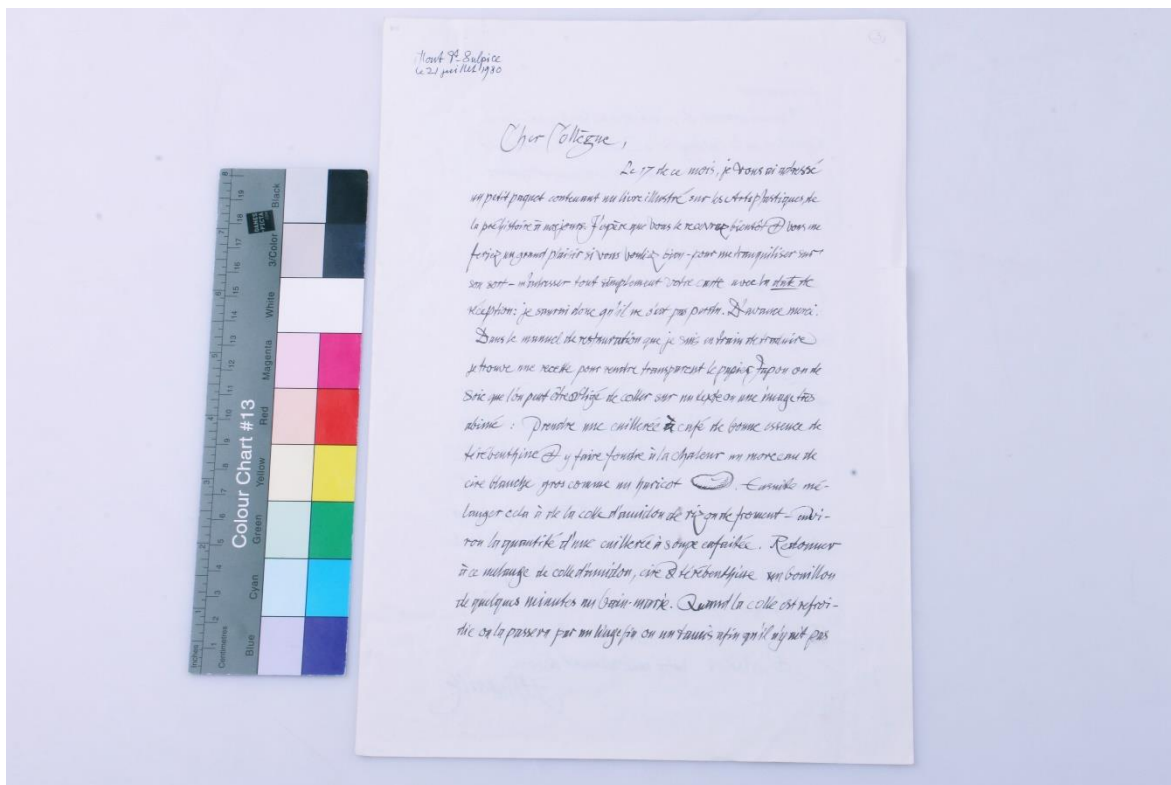 Mont St-Sulpice
le 21 juillet 1980
Cher Collègue,
Le 17 de ce mois, je vous ai adressé
un petit paquet contenant un livre illustré sur les Arts plastiques de
la préhistoire à nos jours. J'espère que vous le recevrez bientôt & vous me
feriez un grand plaisir si vous vouliez bien - pour me tranquiliser sur
son sort - m'adresser tout simplement votre carte avec la date de
réception: je saurai donc qu'il ne s'est pas perdu. D'avance merci.
Dans le manuel de restauration que je suis en train de traduire
je trouve une recette pour rendre transparent le papier Japon ou de
soie que l'on peut être obligé de coller sur un texte ou une image très
abimé : Prendre une cuillerée à café de bonne essence de
térébenthine & y faire fondre à la chaleur un morceau de
cire blanche gros comme un haricot . Ensuite mé-
langer cela à de la colle d'amidon de riz ou de froment - envi-
ron la quantité d'une cuillerée à soupe enfaîtée. Redonner
à ce mélange de colle d'amidon, cire & térébenthine un bouillon
de quelques minutes au bain-marie. Quand la colle est refroi-
die on la passera par un linge fin ou un tamis afin qu'il n'y ait pas
Colour Chart #13
Blue
Cyan
Green
Yellow
Red
Magenta
White
3/Color
Black
Inches
Centimetres
DANES
PICTA
1 2 3 4 5 6 7 8
1 2 3 4 5 6 7 8 9 10 11 12 13 14 15 16 17 18 19